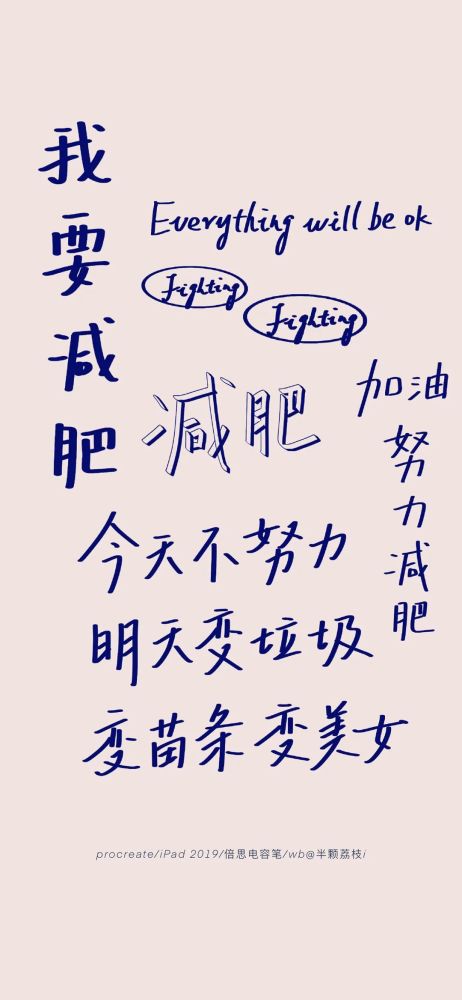 我要减肥
Everything will be ok
Fighting
Fighting
减肥
加油
努力减肥
今天不努力
明天变垃圾
变苗条 变美女
procreate/iPad 2019/倍思电容笔/wb@半颗荔枝i